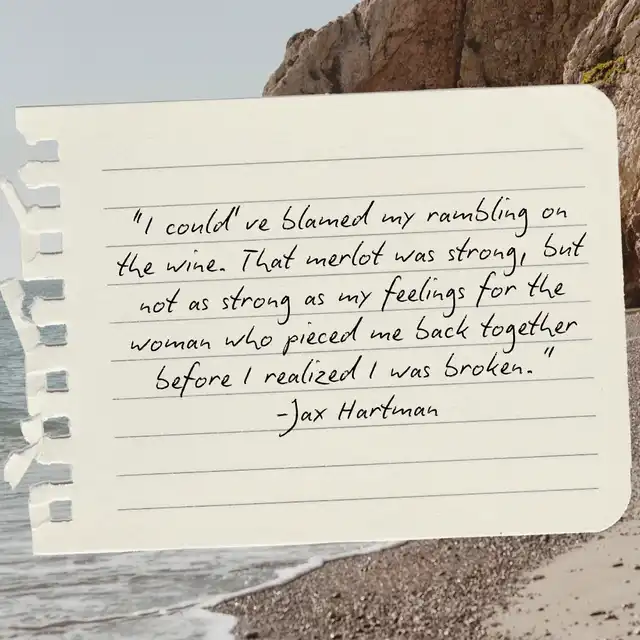 "I could"ve blamed my rambling on
the wine. That merlot was strong, but
not as strong as my feelings for the
woman who pieced me back together
before I realized I was broken."
-Jax Hartman